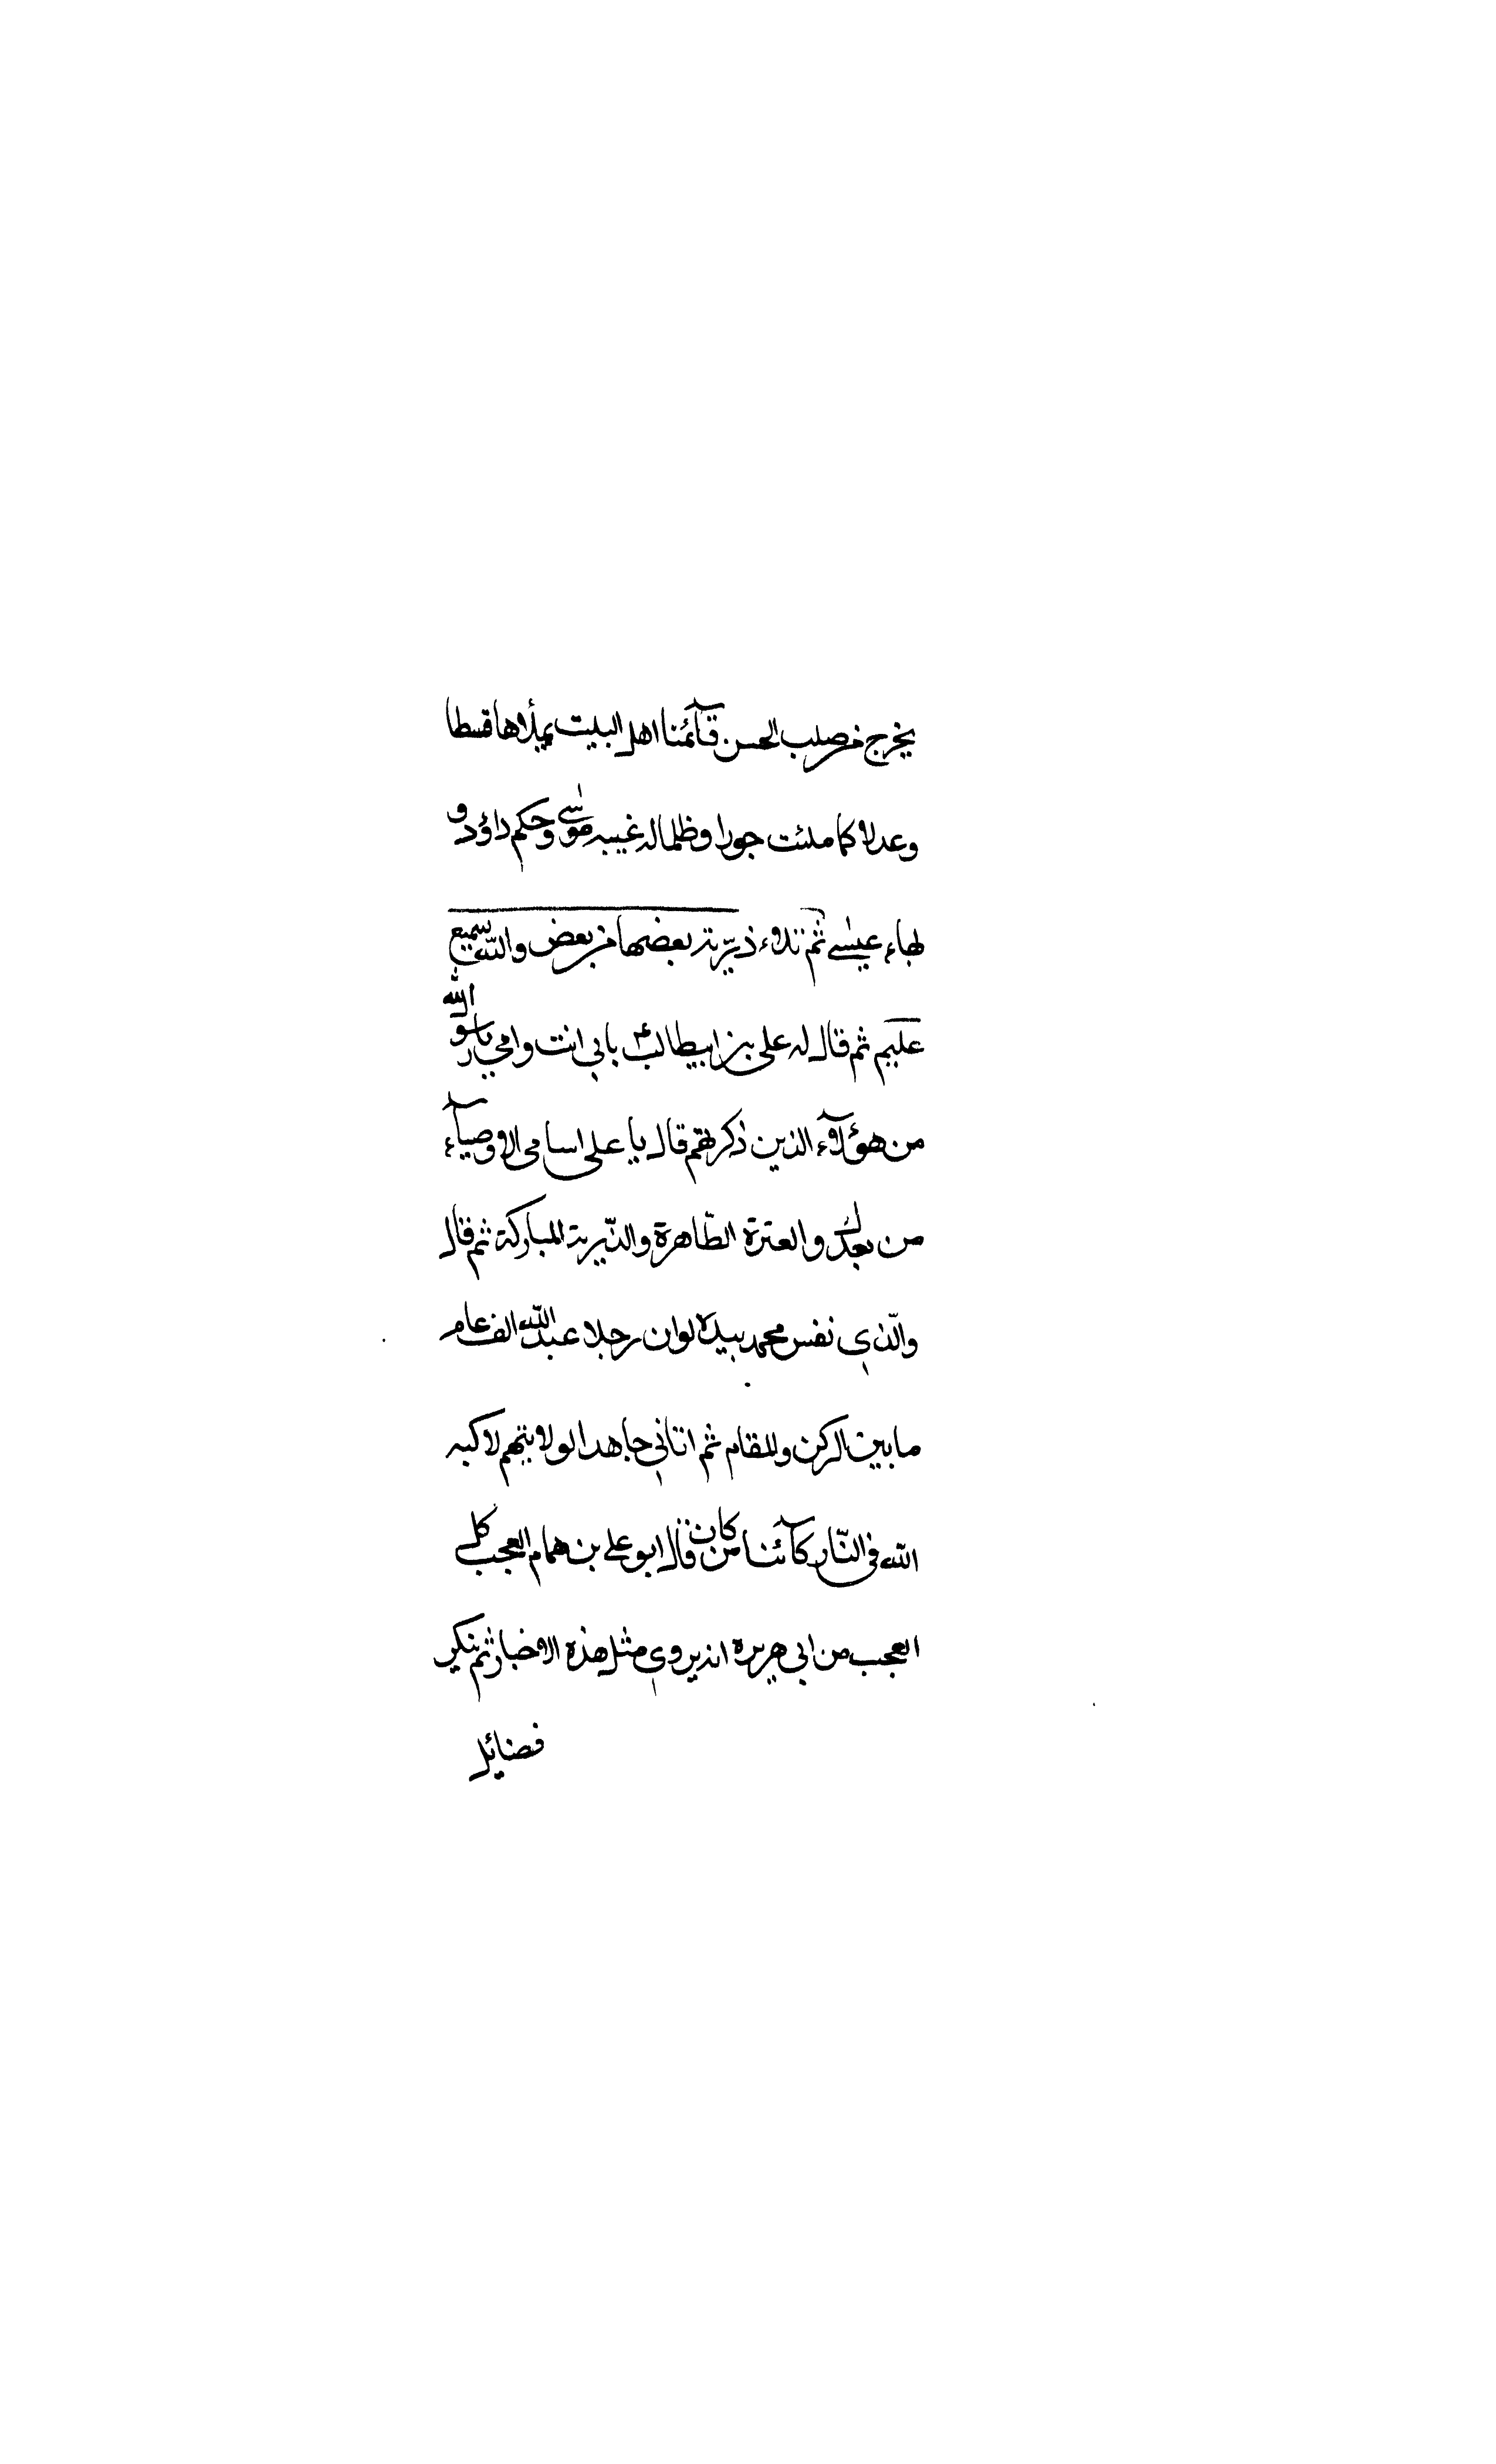 يخرج من صلب الحسن قآئمنا اهل البيت يملأها قسطا
وعدلا كما ملئت جورا وظلما له غيبه موسى وحكم داؤد و
بهاء عيسى ثم تلاء ذرّية بعضها من بعض والله سميع
عليم ثم قال له علي بن ابيطالب ع بابي انت وامي يا رسول الله
من هؤلآء الذين ذكرتهم قال يا علي اسامي الاوصيآء
من بعدك والعترة الطّاهرة والذّرية المباركة ثم قال
والّذي نفس محمد بيده لو ان رجلا عبد الله الف عام
ما بين الركن والمقام ثم اتاني جاهدا لولايتهم لاكبه
الله في النّار كآئنا من كان قال ابو علي بن همام العجب كل
العجب من ابي هريرة انه يروي مثل هذه الاخبار ثم ينكر
فضائل